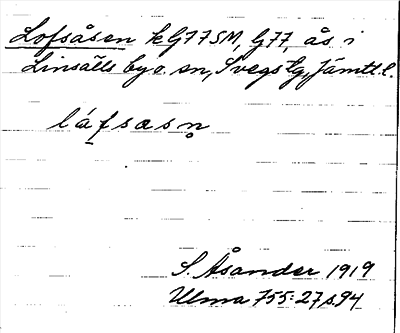 Lofsåsen k G77SM, G77, ås i
Linsälls by o. sn, Svegs tg, Jämtl. l.
láfsasn̥
S. Åsander 1919
Ulma 755:27 s. 94